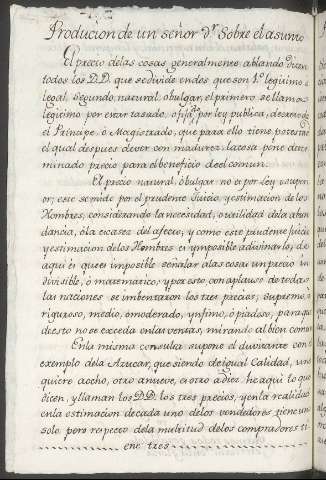 Producion de un señor Dr. Sobre el asunto
El precio delas cosas generalmente ablando dizen
todos los D.D. que sedivide endos que son 1.º legitimo o
legal, Segundo, natural, obulgar, el primero se llama
legitimo por estar tasado, ofijado por ley publica, de
el Principe, ô Magistrado, que para ello tiene potestad
el qual despues dever con madurez lacosa pone deter
minado precio para el beneficio deel comun.
El precio natural, ôbulgar no es por Ley superi
or; este se mide por el prudente Juicio, yestimacion de los
Hombres, considerando la necesidad, o utilidad dela abun
dancia, ôla escasez del afecto, y como este prudente juicio
yestimacion delos Hombres es ymposible adivinarlo, de
aqui es quees imposible señalar alas cosas un precio in
divisible, ò matematico; ypor esto, conaplauso de todas
las naciones se imbentaron los tres precios; supremo, ô
riguroso, medio, ômoderado, ynfimo, ô piadoso, para que
deesto no se exceda enlas ventas, mirando albien comun
Enla misma consulta supone el
exemplo dela Azucar, que siendo de igual Calidad, uno
quiere aocho, otro anueve, aotro adiez he aqui lo que
dicen, yllaman los D.D. los tres precios, yenla realidad
enla estimacion decada uno delos vendedores tiene uno
solo pero respecto dela multitud de los compradores ti
ene tres